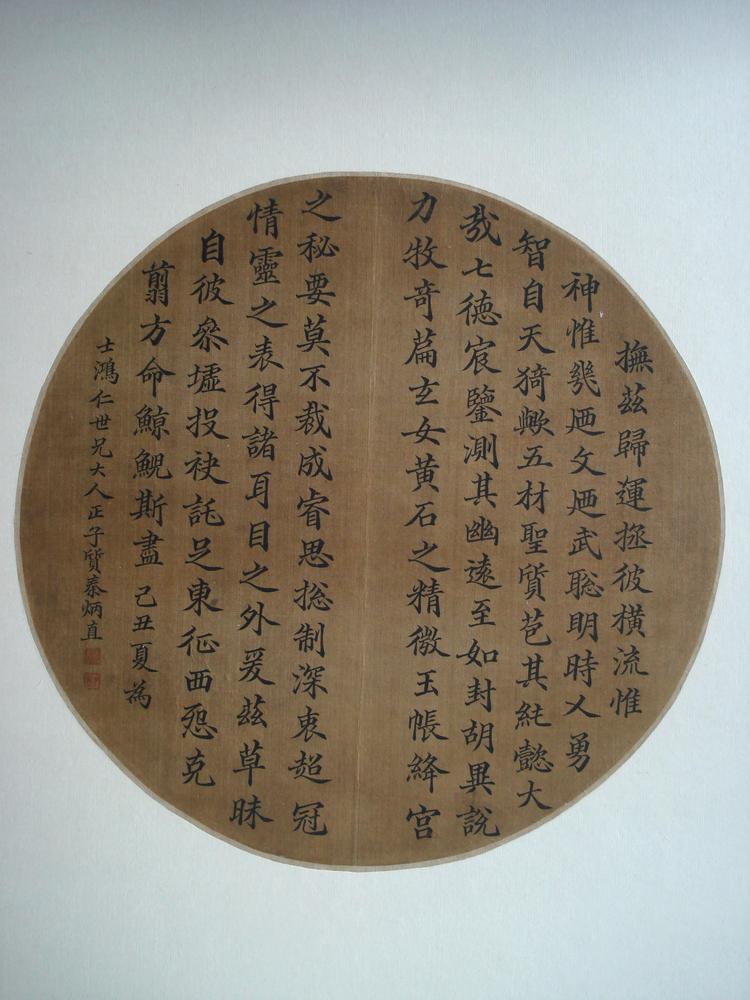 撫茲歸運拯彼橫流惟
神惟幾迺文迺武聡明時乂勇
智自天猗歟五材聖質苞其純懿大
哉七德宸鑒測其幽遠至如封胡異說
力牧奇篇玄女黄石之精微玉帳絳宫
之秘要莫不裁成睿思捴制深衷超冠
情靈之表得諸耳目之外爰茲草昧
自彼叅墟投袂託足東征西怨克
翦方命鯨鯢斯盡 己丑夏為
士鴻仁世兄大人正 子質秦炳直